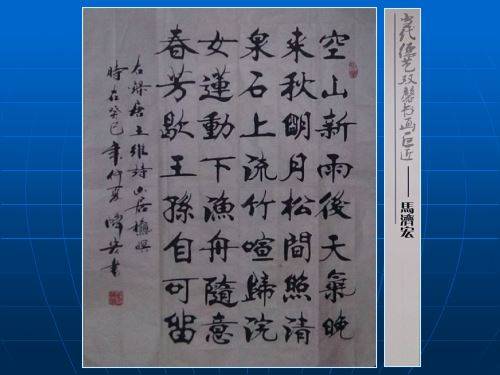 当代德艺双馨书画巨匠——馬濟宏
空山新雨後天氣晚
来秋明月松間照清
泉石上流竹喧歸浣
女蓮動下漁舟隨意
春芳歇王孫自可留
右錄唐王維詩山居秋暝
時在癸巳年仲夏濟宏書